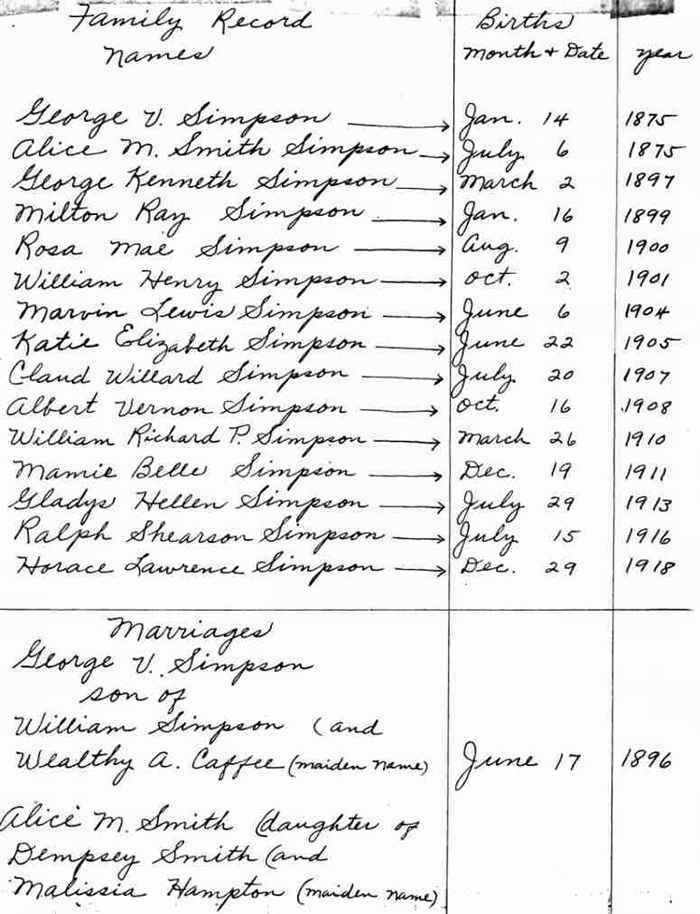 Family Record Births
Names Month + Date year
George V. Simpson Jan. 14 1875
Alice M. Smith Simpson July 6 1875
George Kenneth Simpson March 2 1897
Milton Ray Simpson Jan. 16 1899
Rosa Mae Simpson Aug. 9 1900
William Henry Simpson Oct. 2 1901
Marvin Lewis Simpson June 6 1904
Katie Elizabeth Simpson June 22 1905
Claud Willard Simpson July 20 1907
Albert Vernon Simpson Oct. 16 1908
William Richard P. Simpson March 26 1910
Mamie Belle Simpson Dec. 19 1911
Gladys Hellen Simpson July 29 1913
Ralph Shearson Simpson July 15 1916
Horace Lawrence Simpson Dec. 29 1918
Marriages
George V. Simpson
son of
William Simpson (and
Wealthy A. Caffee (maiden name) June 17 1896
Alice M. Smith (daughter of
Dempsey Smith (and
Malissia Hampton (maiden name)